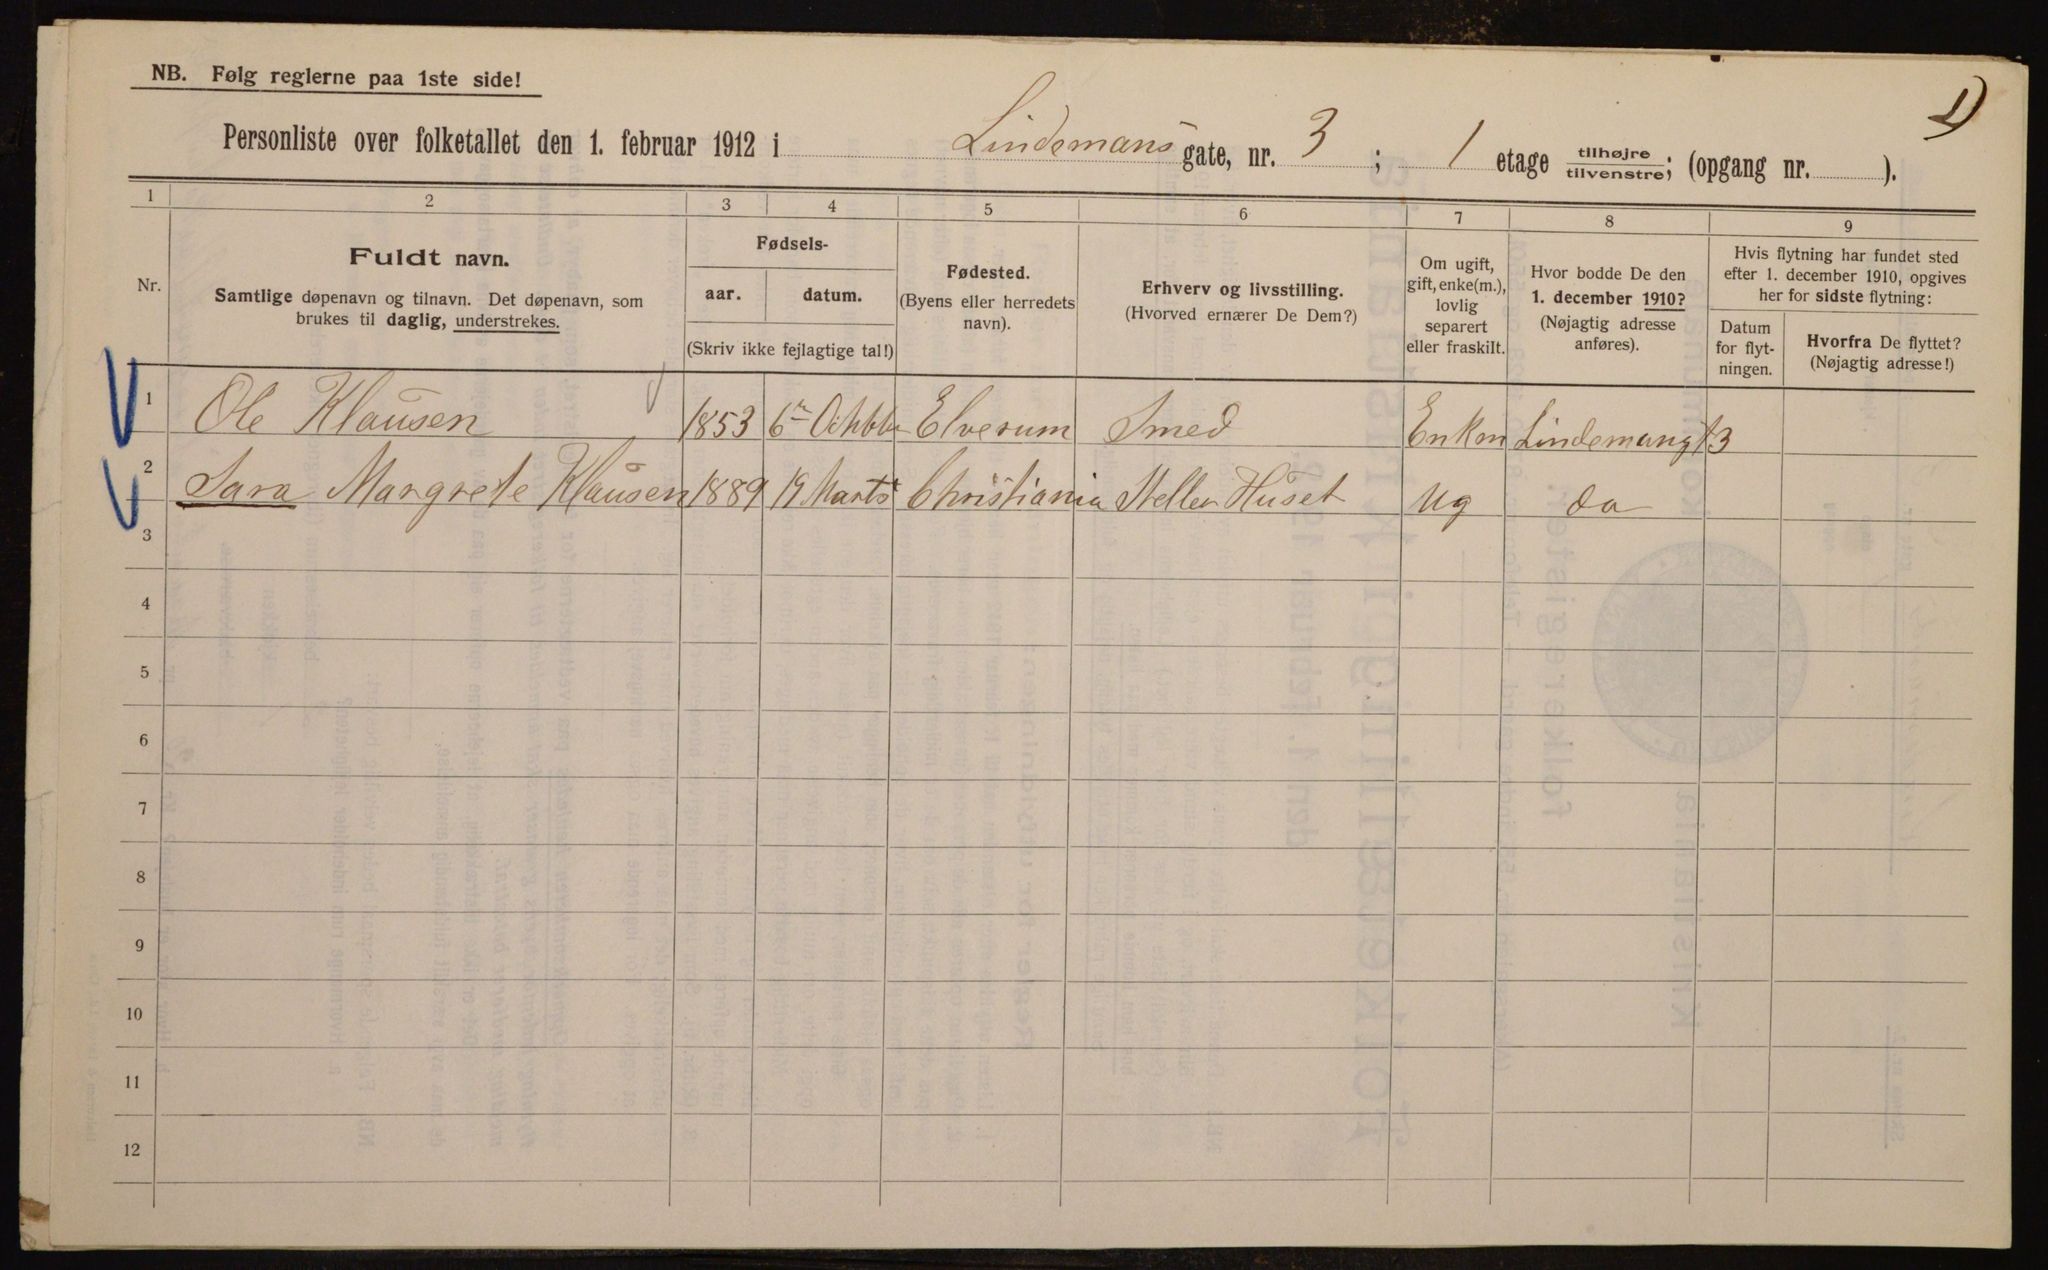 NB. Følg reglerne paa 1ste side!
1)
Personliste over folketallet den 1. februar 1912 i Lindemans gate, nr. 3 ; 1 etage tilhøjre/tilvenstre; (opgang nr. ).
1 2 3 4 5 6 7 8 9
Nr.
Fuldt navn.
Samtlige døpenavn og tilnavn. Det døpenavn, som
brukes til daglig, understrekes.
Fødsels-
aar. datum.
(Skriv ikke fejlagtige tal!)
Fødested.
(Byens eller herredets
navn).
Erhverv og livsstilling.
(Hvorved ernærer De Dem?)
Om ugift,
gift, enke(m.),
lovlig
separert
eller fraskilt.
Hvor bodde De den
1. december 1910?
(Nøjagtig adresse
anføres).
Hvis flytning har fundet sted
efter 1. december 1910, opgives
her for sidste flytning:
Datum
for flyt-
ningen.
Hvorfra De flyttet?
(Nøjagtig adresse!)
1 Ole Klausen 1853 Elverum Smed Enkm Lindemangt 3
2 Sara Margrete Klausen 1889 19 Marts Christiania Steller Huset Ug do
3
4
5
6
7
8
9
10
11
12